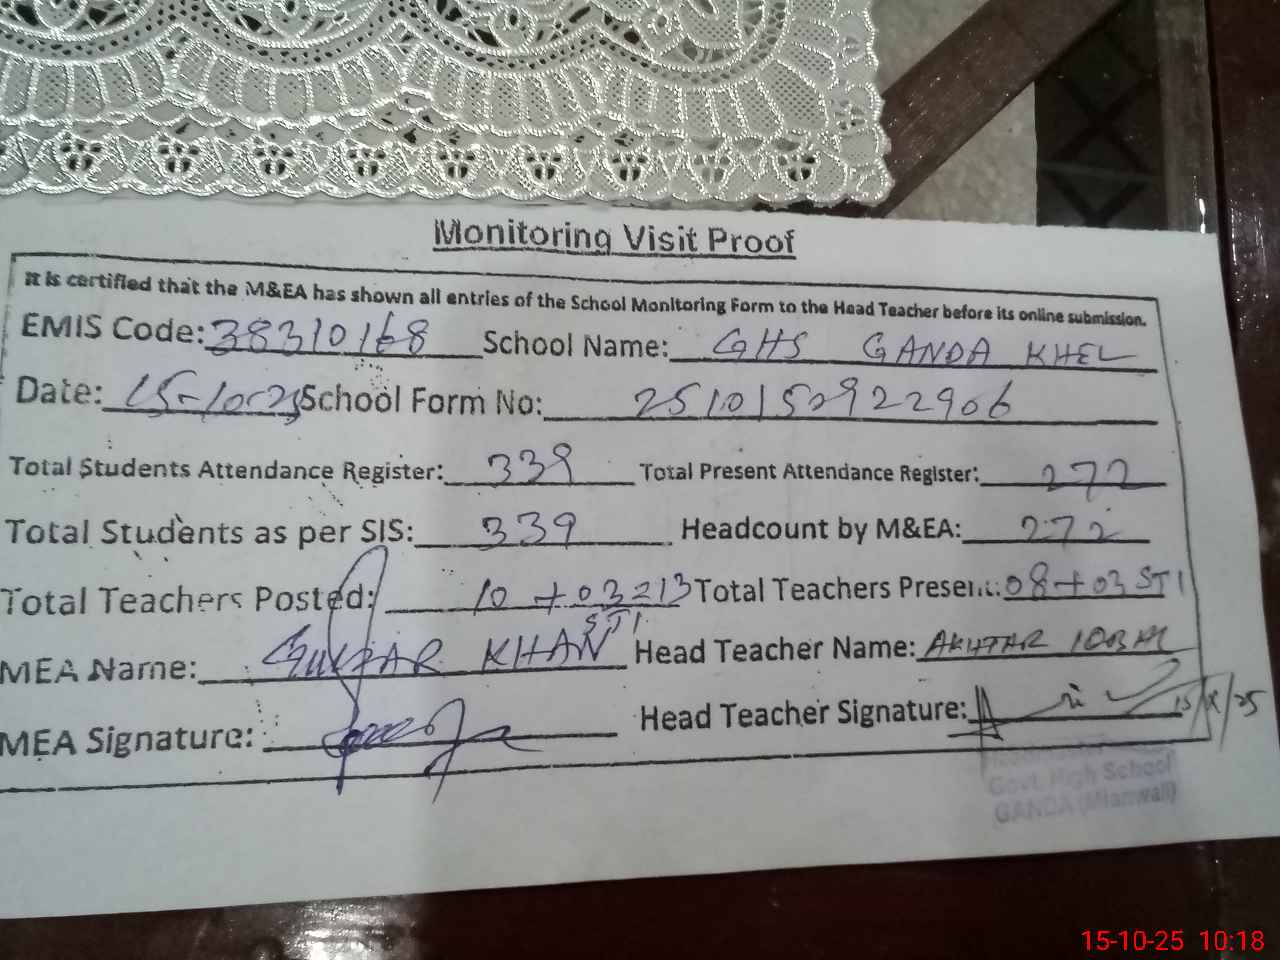 Monitoring Visit Proof
It is certified that the M&EA has shown all entries of the School Monitoring Form to the Head Teacher before its online submission.
EMIS Code: 38310168 School Name: GHS GANDA KHEL
Date: 15-10-25 School Form No: 251015092 2906
Total Students Attendance Register: 339 Total Present Attendance Register: 272
Total Students as per SIS: 339 Headcount by M&EA: 272
Total Teachers Posted: 10 + 03 = 13 Total Teachers Present: 08 + 03 STI
STI
MEA Name: KHAN Head Teacher Name: AKHTAR IQBAL
MEA Signature: Head Teacher Signature: 15/X/25
Govt. High School
GANDA (Mianwali)
15-10-25 10:18